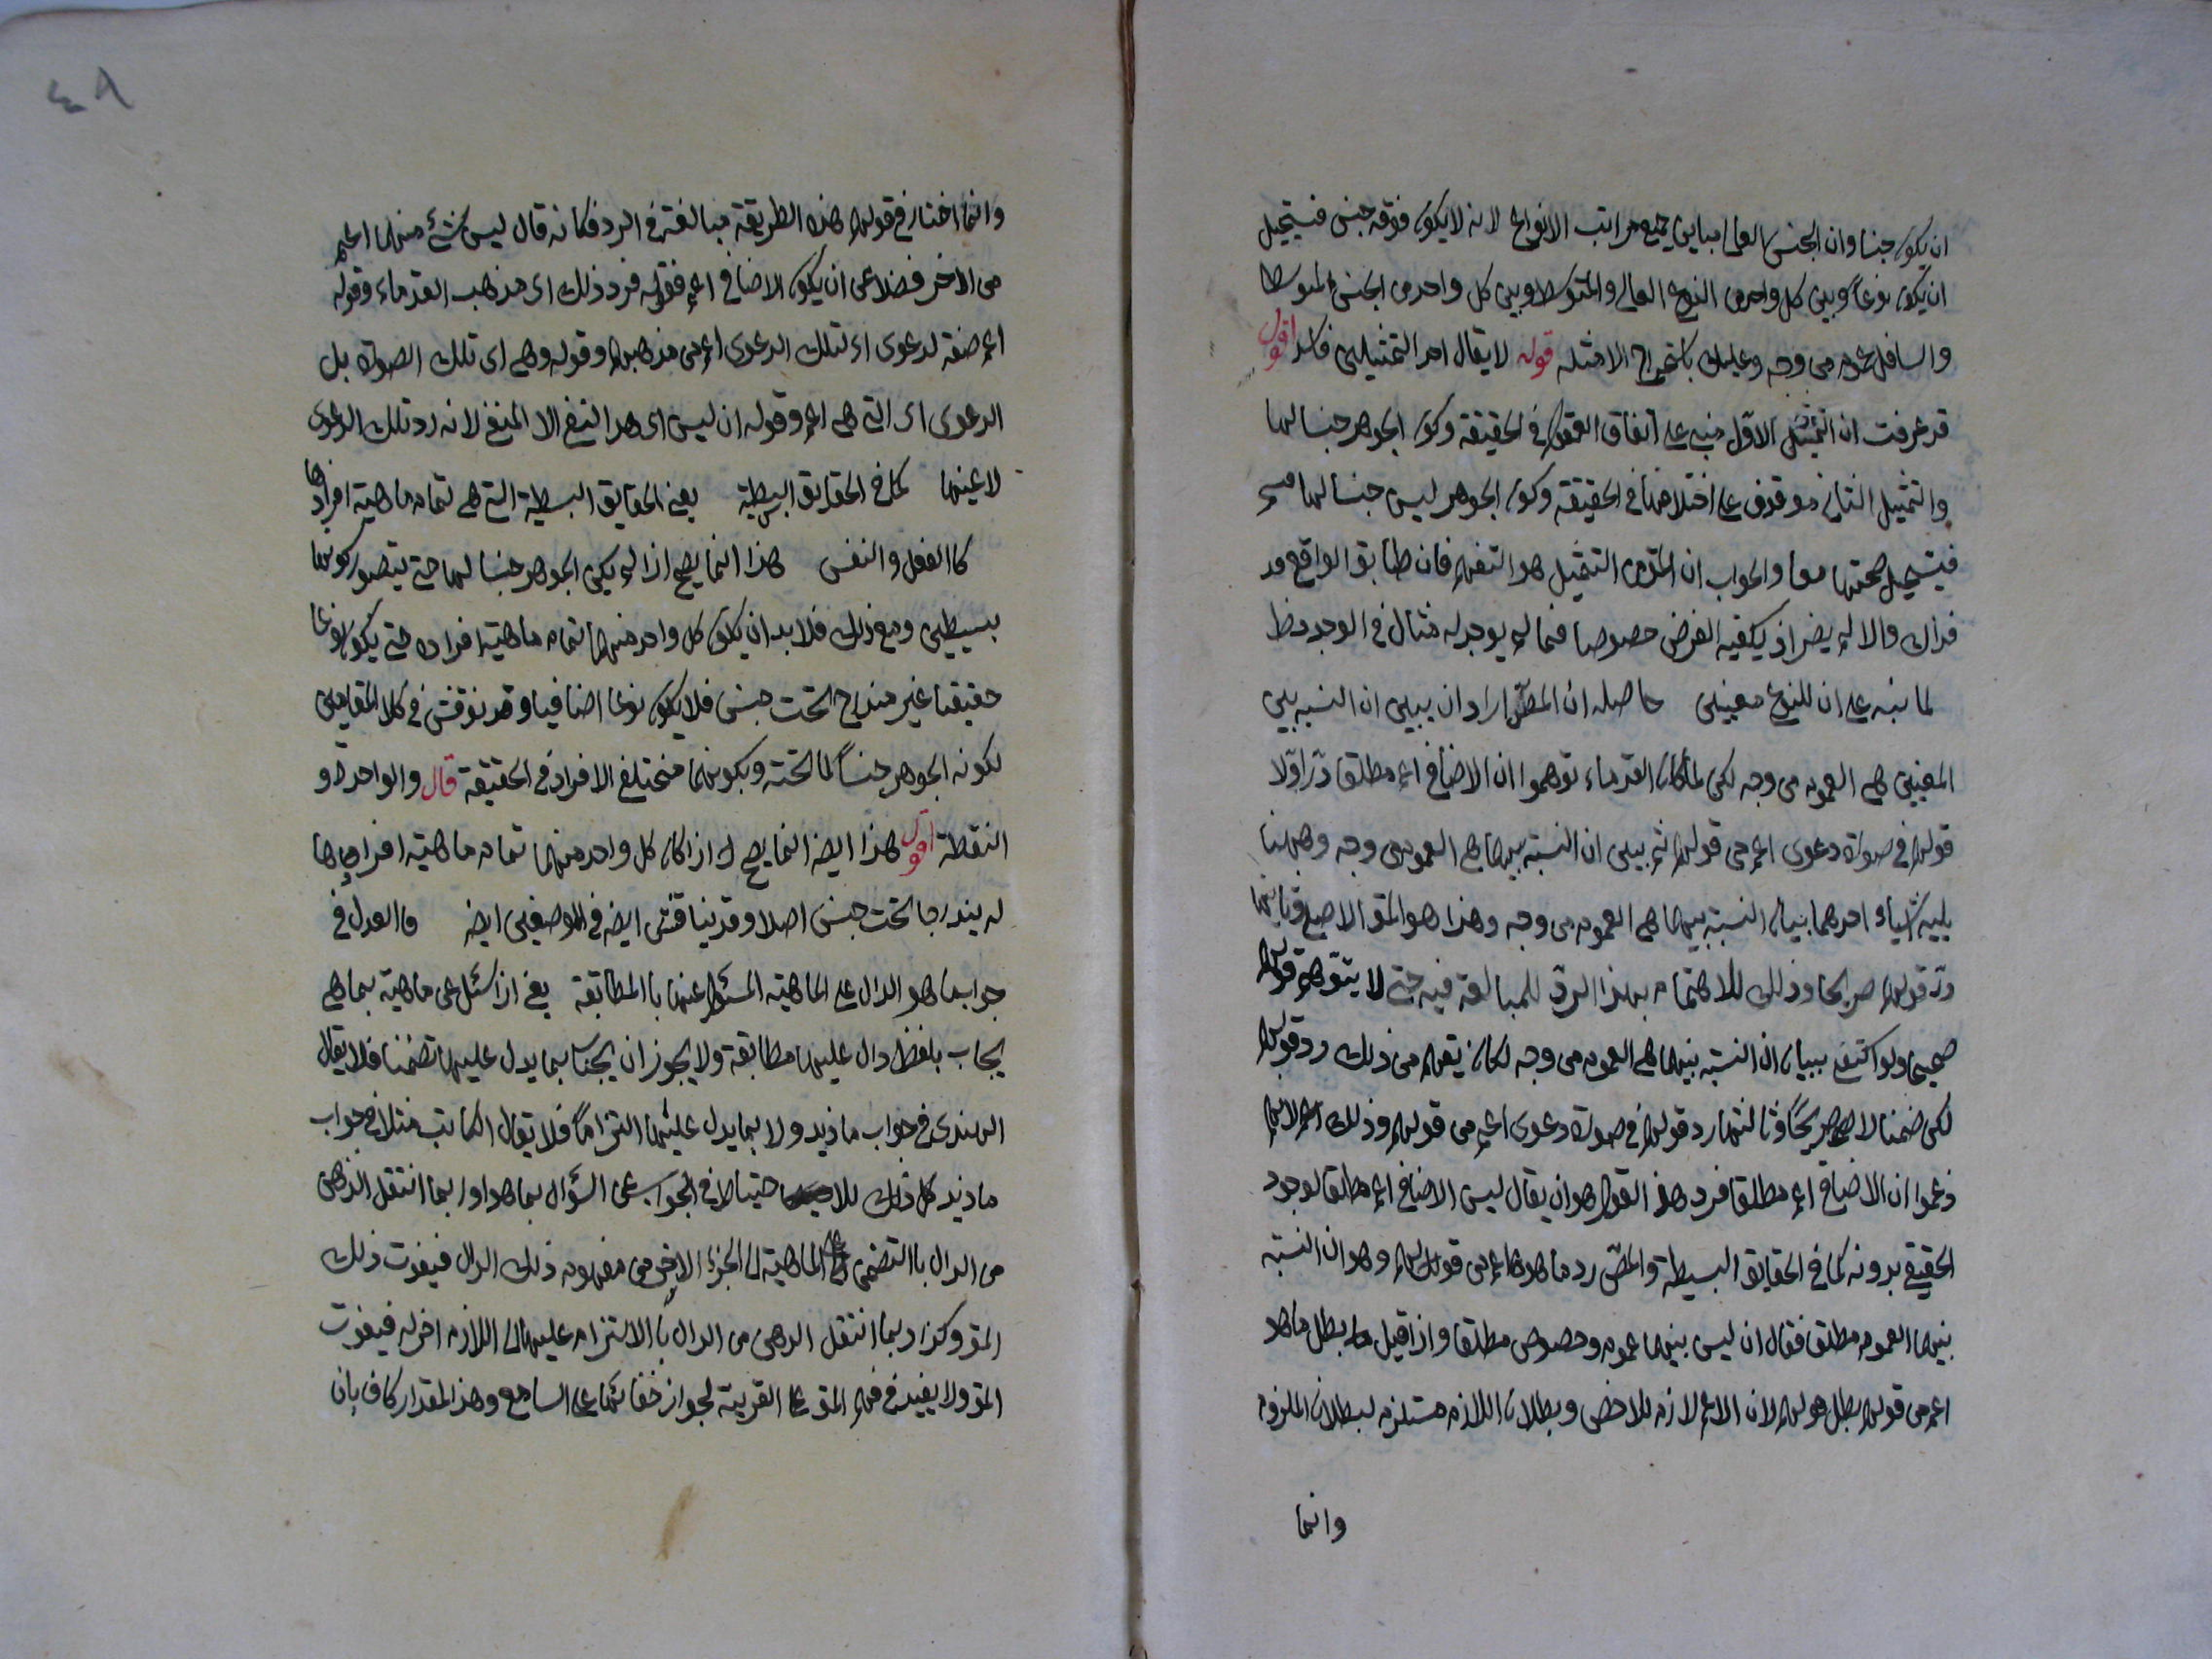 ان يكون جنسا وان الجنس العالى مباين لجميع مراتب الانواع لانه لا يكون فوقه جنس فيستحيل
ان يكون نوعاً وبين كل واحد من النوع العالى والمتوسط وبين كل واحد من الجنس المتوسط
والسافل عموم من وجه وعليك باستخراج الامثله قوله لا يقال احد التمثيلين فاسد اقول
قد عرفت ان التمثيل الاوّل مبنى على اتفاق العقول فى الحقيقة وكون الجوهر جنسا لها
والتمثيل الثانى موقوف على اختلافها فى الحقيقة وكون الجوهر ليس جنسا لها
فيستحيل صحتهما معا والجواب ان المقص من التمثيل هو التفهيم فان طابق الواقع
فذاك والا لم يضر اذ يكفيه الفرض خصوصا فيما لم يوجد له مثال فى الوجود
لما نبه على ان للنوع معنيين حاصله ان المصّ اراد ان يبين ان النسبه بين
المعنيين هى العموم من وجه لكن لما كان القدماء توهموا ان الاضافى اعم مطلقا ردّ اوّلا
قولهم فى صورة دعوى اعم من قولهم ثم بين ان النسبة بينهما هى العموم من وجه وههنا
ثلثه اشياء احدهما بيان النسبة بينهما هى العموم من وجه وهذا هو المقـ الاصلى وثانيها
ردّ قولهم صريحا وذلك للاهتمام بهذا الردّ للمبالغة فيه حتى لا يتوهم قولهم
صحيح ولو اكتفى ببيان ان النسبة بينهما هى العموم من وجه لكان يفهم من ذلك رد قولهم
لكن ضمنا لا صريحًا وثالثها رد قولهم فى صورة دعوى اعم من قولهم وذلك لانهم
زعموا ان الاضافى اعم مطلقا فرد هذا القول هو ان يقال ليس الاضافى اعم مطلقا لوجود
الحقيقى بدونه كما فى الحقايق البسيطة والمصّ رد ما هو اعم من قولهم وهو ان النسبة
بينهما العموم مطلقا فقال ان ليس بينهما عموم وخصوص مطلقا واذا قيل بطل ما هو
اعم من قولهم بطل قولهم لان الاعم لازم للاخص وبطلان اللازم مستلزم لبطلان الملزوم
وانما
٤٨
وانما اختار فى قولهم هذه الطريقة مبالغة فى الرد فكانه قال ليس شئ منهما اعم
من الاخر فضلا عن ان يكون الاضافى اعم فقوله فرد ذلك اى مذهب القدماء وقوله
اعم صفة لدعوى اى لتلك الدعوى اعم من مذهبهم وقوله وهى اى تلك الصورة بل
الدعوى اى التى هى اعم وقوله ان ليس اى هذا النفى لا المنفى لانه رد تلك الدعوى
لا عينها كما فى الحقايق البسيطة يعنى الحقايق البسيطة التى هى تمام ماهية افرادها
كاالعقل والنفس هذا انما يصح اذا لم يكن الجوهر جنسا لهما حتى يتصور كونهما
بسيطين ومع ذلك فلا بد ان يكون كل واحد منهما تمام ماهية افراده حتى يكون نوعا
حقيقيا غير مندرج تحت جنس فلا يكون نوعا اضافيا وقد نوقش فى كلا المقامين
لكونه الجوهر جنساً لما تحته وبكونهما مختلف الافراد فى الحقيقة قال والواحدة و
النقطة اقول هذا ايضا انما يصح اذا كان كل واحد منهما تمام ماهية افرادها
لم يندرجا تحت جنس اصلا وقد يناقش ايضا فى الموضعين ايضا والعدل فى
جواب ما هو الدال على الماهية المسئول عنها باالمطابقة يعنى اذا سئل عن ماهية بما هى
يجاب بلفظ دال عليها مطابقة ولا يجوز ان يجاب بما يدل عليها تضمنا فلا يقال
الهندى فى جواب ما زيد ولا بما يدل عليها التزاماً فلا يقال الكاتب مثلا فى جواب
ما زيد كل ذلك للاحتياط فى الجواب عن السؤال بما هو اذ ربما انتقل الذهن
من الدال باالتضمن على الماهية الى الجزء الاخر من مفهوم ذلك الدال فيفوت ذلك
المقـ وكذا ربما انتقل الذهن من الدال باالالتزام عليها الى اللازم اخر له فيفوت
المقـ ولا يفيد فى فهم المقـ على القرينة لجواز خفائها على السامع وهذا المقدار كاف بان